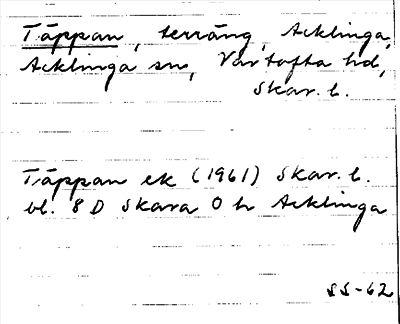 Täppan, terräng, Acklinga,
Acklinga sn, Vartofta hd,
Skar. l.
Täppan ek (1961) Skar. l.
bl. 8 D Skara O h Acklinga
SS-62